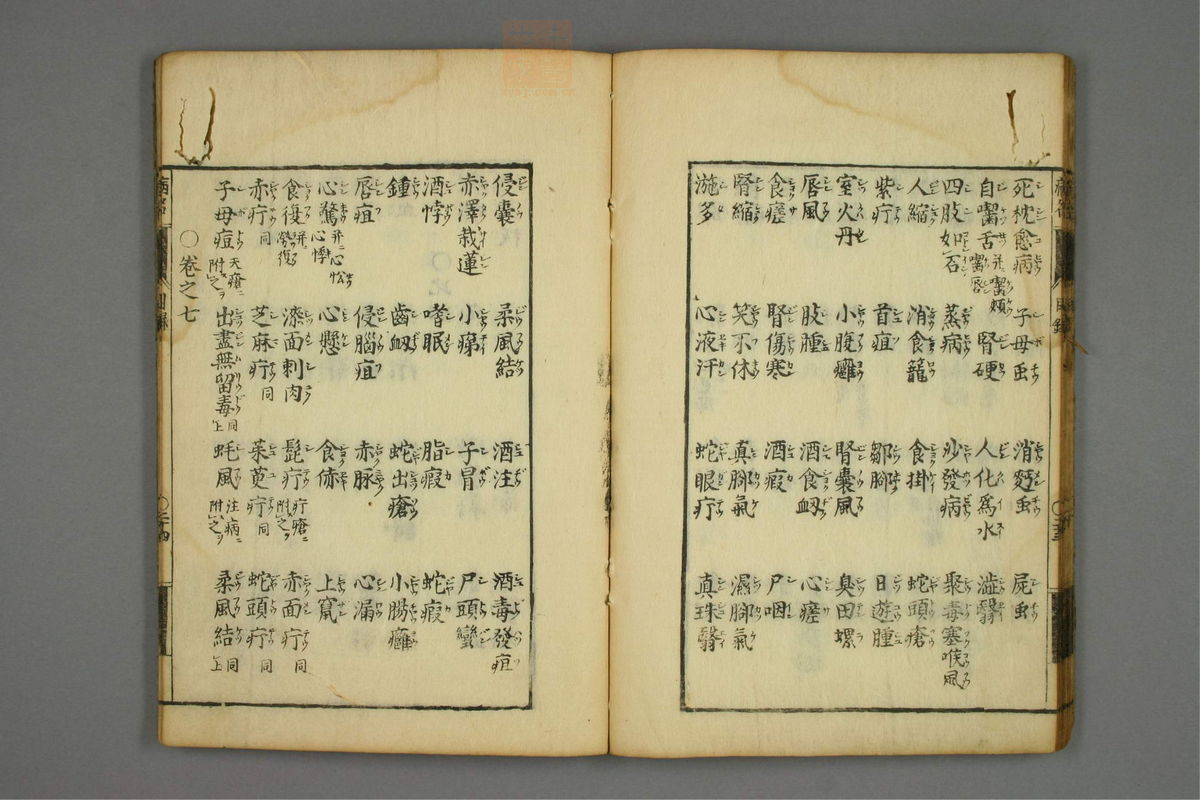 死枕愈病 子母虫 消䴬虫 屍虫
自嚙舌 并ニ嚙頬嚙唇 腎硬 人化為水 澁翳
四肢如石 蒸病 沙發病 聚毒塞喉風
人縮 消食籠 食掛 蛇頭瘡
紫疔 首疽 鄒脚 日遊腫
室火丹 小腹癰 腎嚢風 臭田螺
唇風 肢腫 酒食衂 心瘥
食瘥 腎傷寒 酒瘕 尸咽
腎縮 笑不休 真脚氣 濕脚氣
游多 心液汗 蛇眼疔 真珠翳
侵嚢 柔風結 酒注 酒毒發疽
赤澤栽蓮 小㾹 子冒 尸頭蠻
酒悖 嗜眠 脂瘕 蛇瘕
鍾 齒衂 蛇出瘡 小腸癰
唇疽 侵腦疽 赤脉 心漏
心驚 并ニ心忪心悸 心懸 食㑊 上竄
食復 并ニ勞復 漆面刺肉 髭疔 疔瘡ニ附之ヲ 赤面疔 同
赤疔 同 芝麻疔 同 茱萸疔 同 蛇頭疔 同
子母痘 天瘡ニ附之ヲ 出盡無留毒 同上 蚝風 注病ニ附之ヲ 柔風結 同上
○卷之七